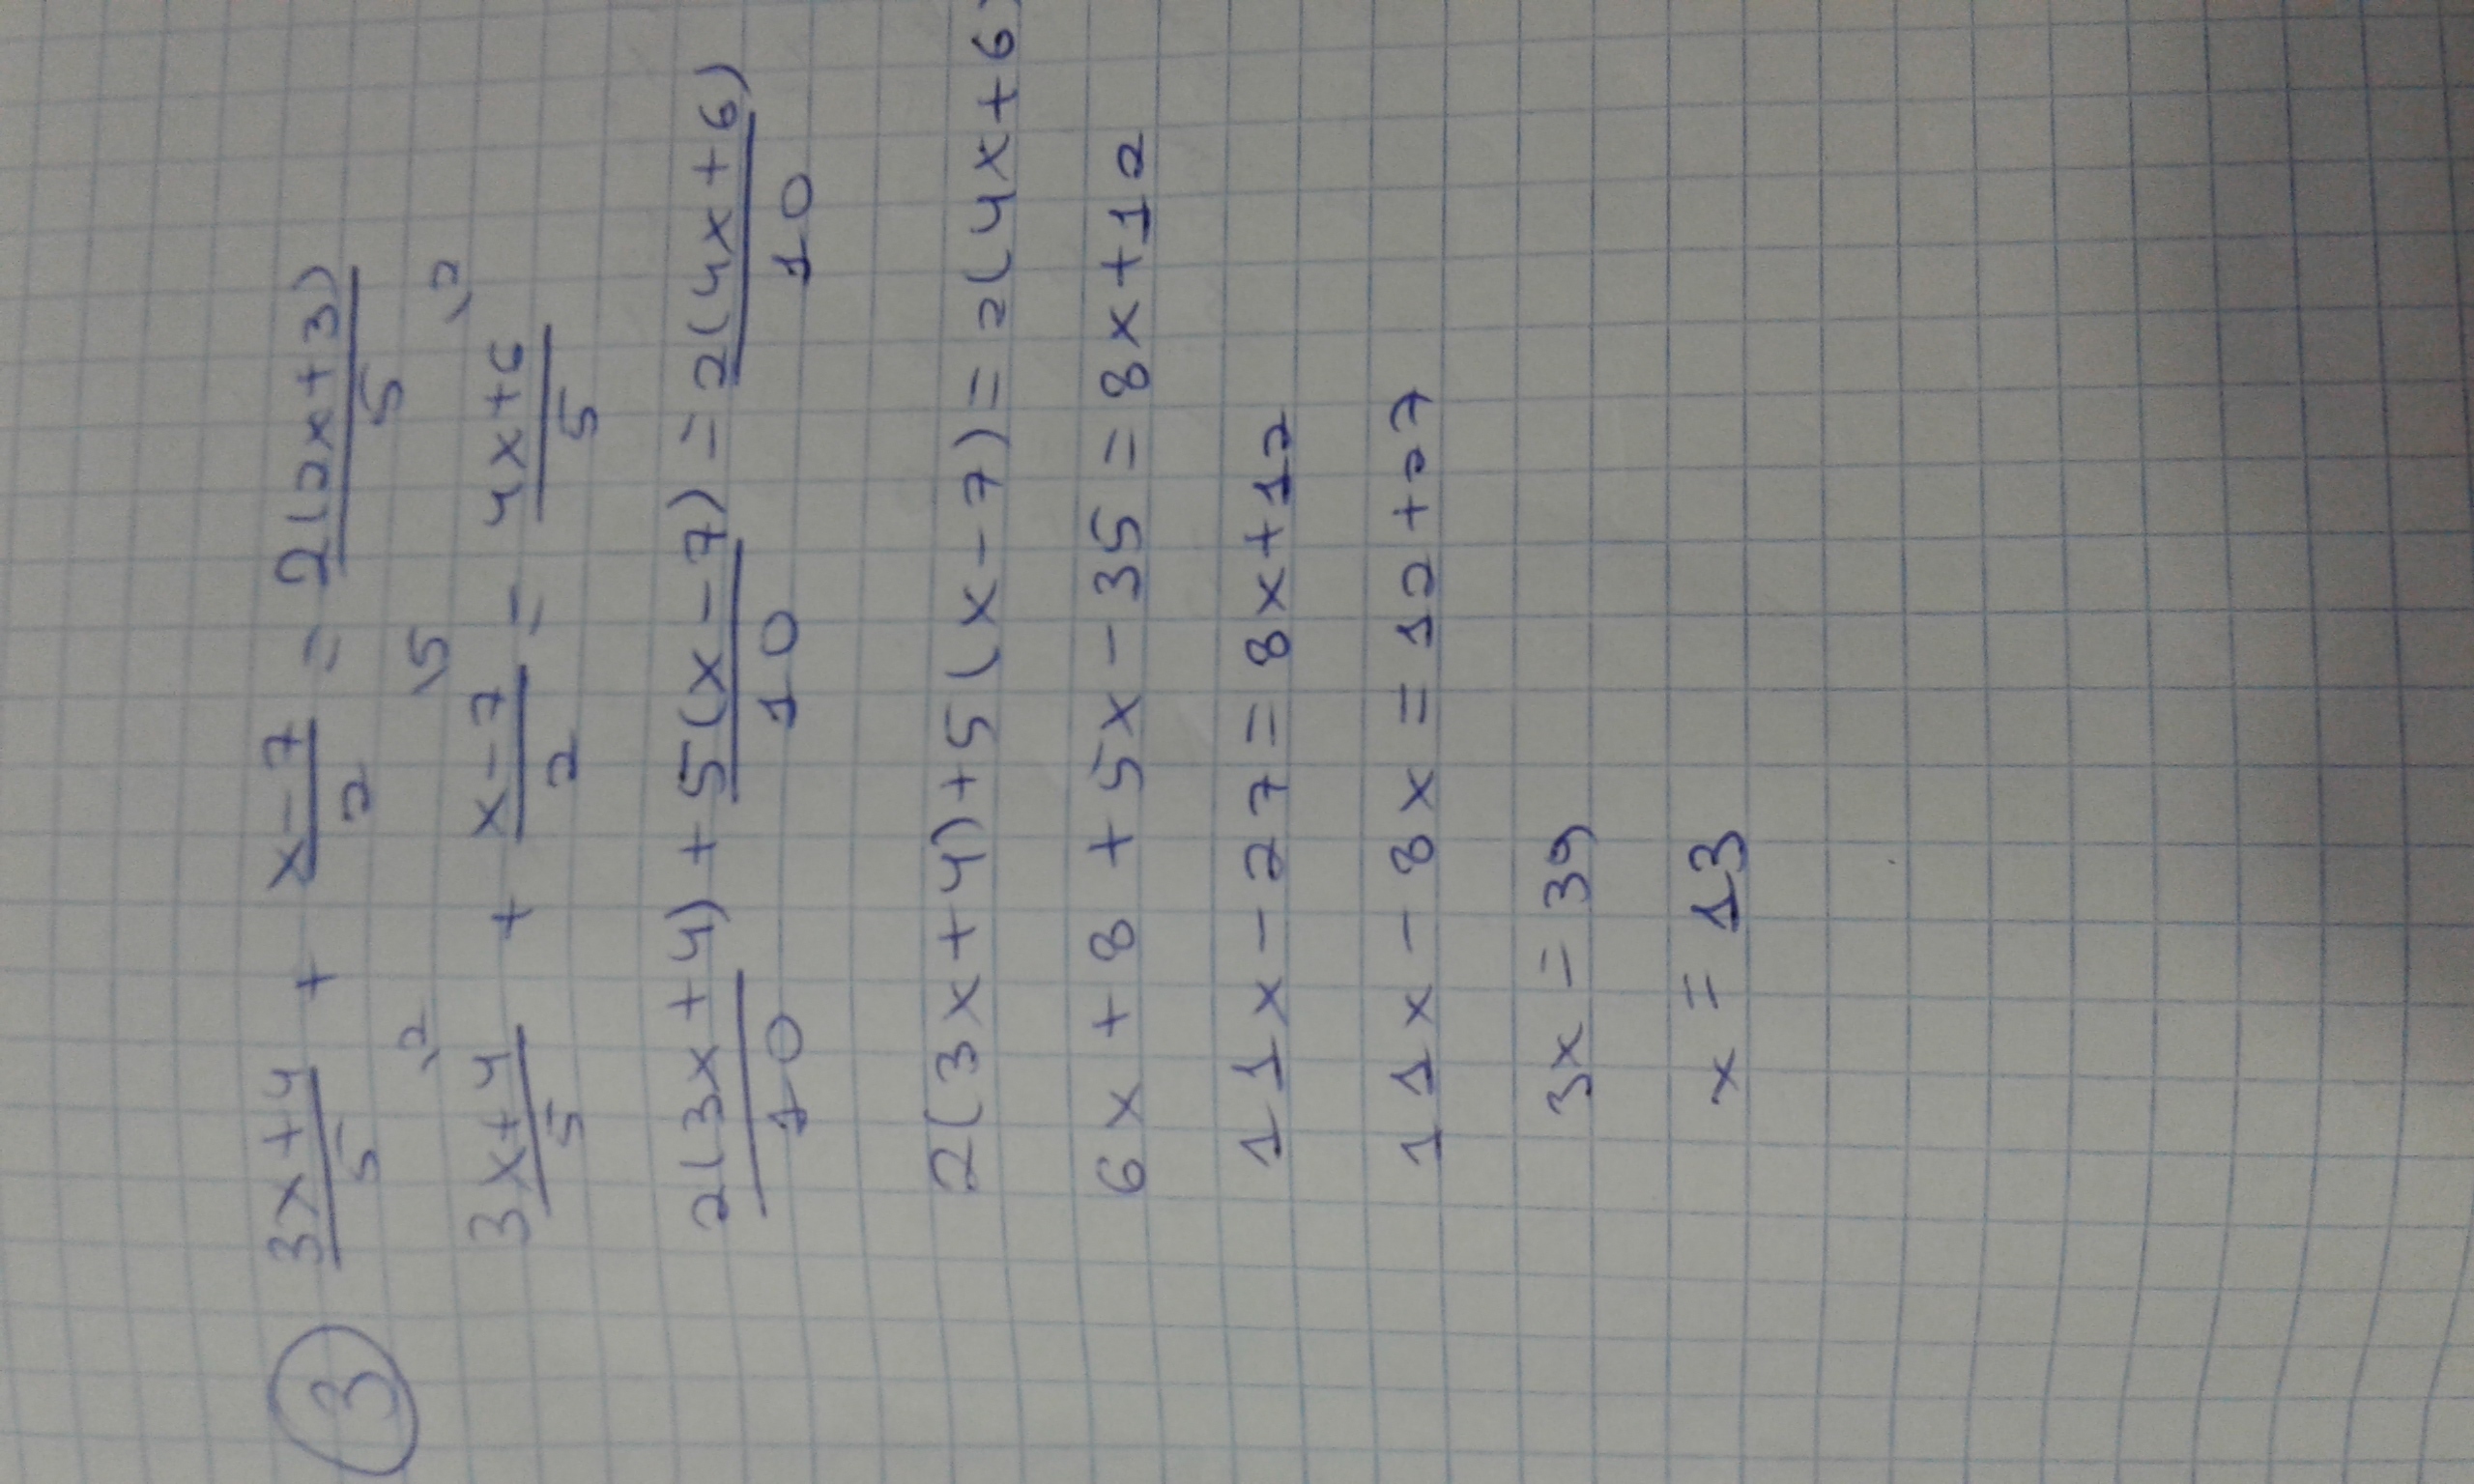 ③ (3x+4)/5 + (x-7)/2 = 2(2x+3)/5
(3x+4)/5 \2 + (x-7)/2 \5 = (4x+6)/5 \2
2(3x+4)/10 + 5(x-7)/10 = 2(4x+6)/10
2(3x+4)+5(x-7)=2(4x+6)
6x+8+5x-35=8x+12
11x-27=8x+12
11x-8x=12+27
3x=39
x=13